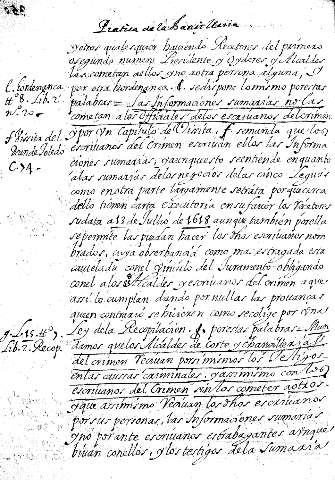 Pratica de la Chancilleria
y otros qualesquier haviendo Relatores del primero
o segundo nuaven Presidente y Oydores y Alcaldes
las cometan a ellos y no a otra persona alguna, y
por otra hordenanca. se dispone lo mismo por estas
palabras = las Informaciones sumarias no las
cometan a los officiales de los escrivanos del crimen
y por Un Capitulo de Visita. se manda que los
escrivanos del Crimen escrivan ellos las Informa
ciones sumarias, y aunque esto se entiende en quanto
a las sumarias de los negocios de las cinco Leguas
como en otra parte largamente se trata por que cerca
dello tienen carta executoria en su favor los Recetores
su data a 13 de Jullio de 1618 aunque tambien por ella
se permite las puedan hacer los dhos escrivanos nom
brados, cuya observancia como mas estragada esta
cautelada con el Vinculo del Juramento obligando
con el a los Alcaldes y escrivanos del crimen a que
assi lo cumplan dando por nullas las provanças
que en contrario se hicieren como se colige por Una
Ley de la Recopilacion. por estas palabras = Man
damos que los Alcaldes de corte y chancilleria
del crimen Tomen por si mismos los Testigos
en las causas criminales. y assimismo con los
escrivanos del Crimen sin los cometer a otros
y que assimismo Tomen los dhos escrivanos
por sus personas, las Informaciones sumarias
y no por ante escrivanos extravagantes aunque
bivan con ellos, y los testigos de la sumaria
C. hordenança
tt° 8. Lib. 2.
n° 20
Visita de
Don de Toledo
C. 34
L. 15. tt° 7.
Lib. 2. Recop.